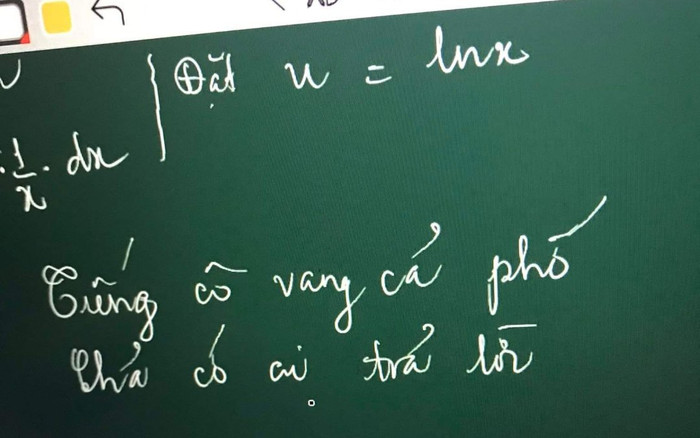 Đặt u = lnx
· 1/x · dx
Tiếng cô vang cả phố
Chả có ai trả lời